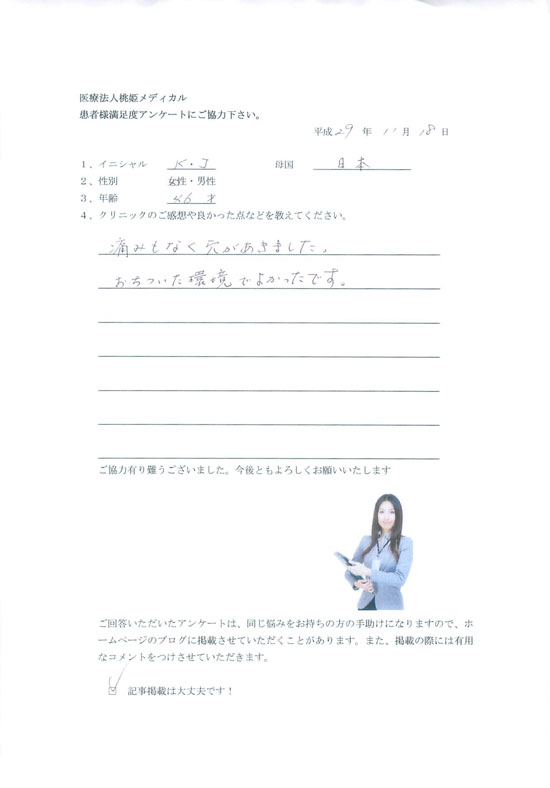 医療法人桃姫メディカル
患者様満足度アンケートにご協力下さい。
平成 29 年 11 月 18 日
1、イニシャル K・J 母国 日本
2、性別 女性・男性
3、年齢 才
4、クリニックのご感想や良かった点などを教えてください。
痛みもなく穴があきました。
おちついた環境でよかったです。
ご協力有り難うございました。今後ともよろしくお願いいたします
ご回答いただいたアンケートは、同じ悩みをお持ちの方の手助けになりますので、ホ
ームページのブログに掲載させていただくことがあります。また、掲載の際には有用
なコメントをつけさせていただきます。
☑ 記事掲載は大丈夫です！